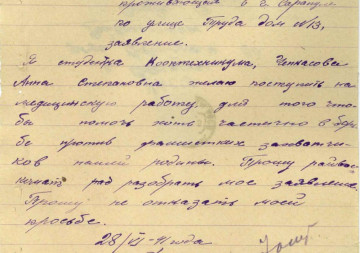 проживающей в г. Сарапул
по улице Труда дом №13,
заявление.
Я студентка Зооптехникума, Черкасова
Анна Степановна желаю поступить на
медицинскую работу для того что-
бы помочь хотя частично в борь
бе против фашистких захватчи-
ков нашей родины. Прошу райвое-
нкомат рад разобрать мое заявление.
Прошу не отказать моей
просьбе.
28/VI-41 года